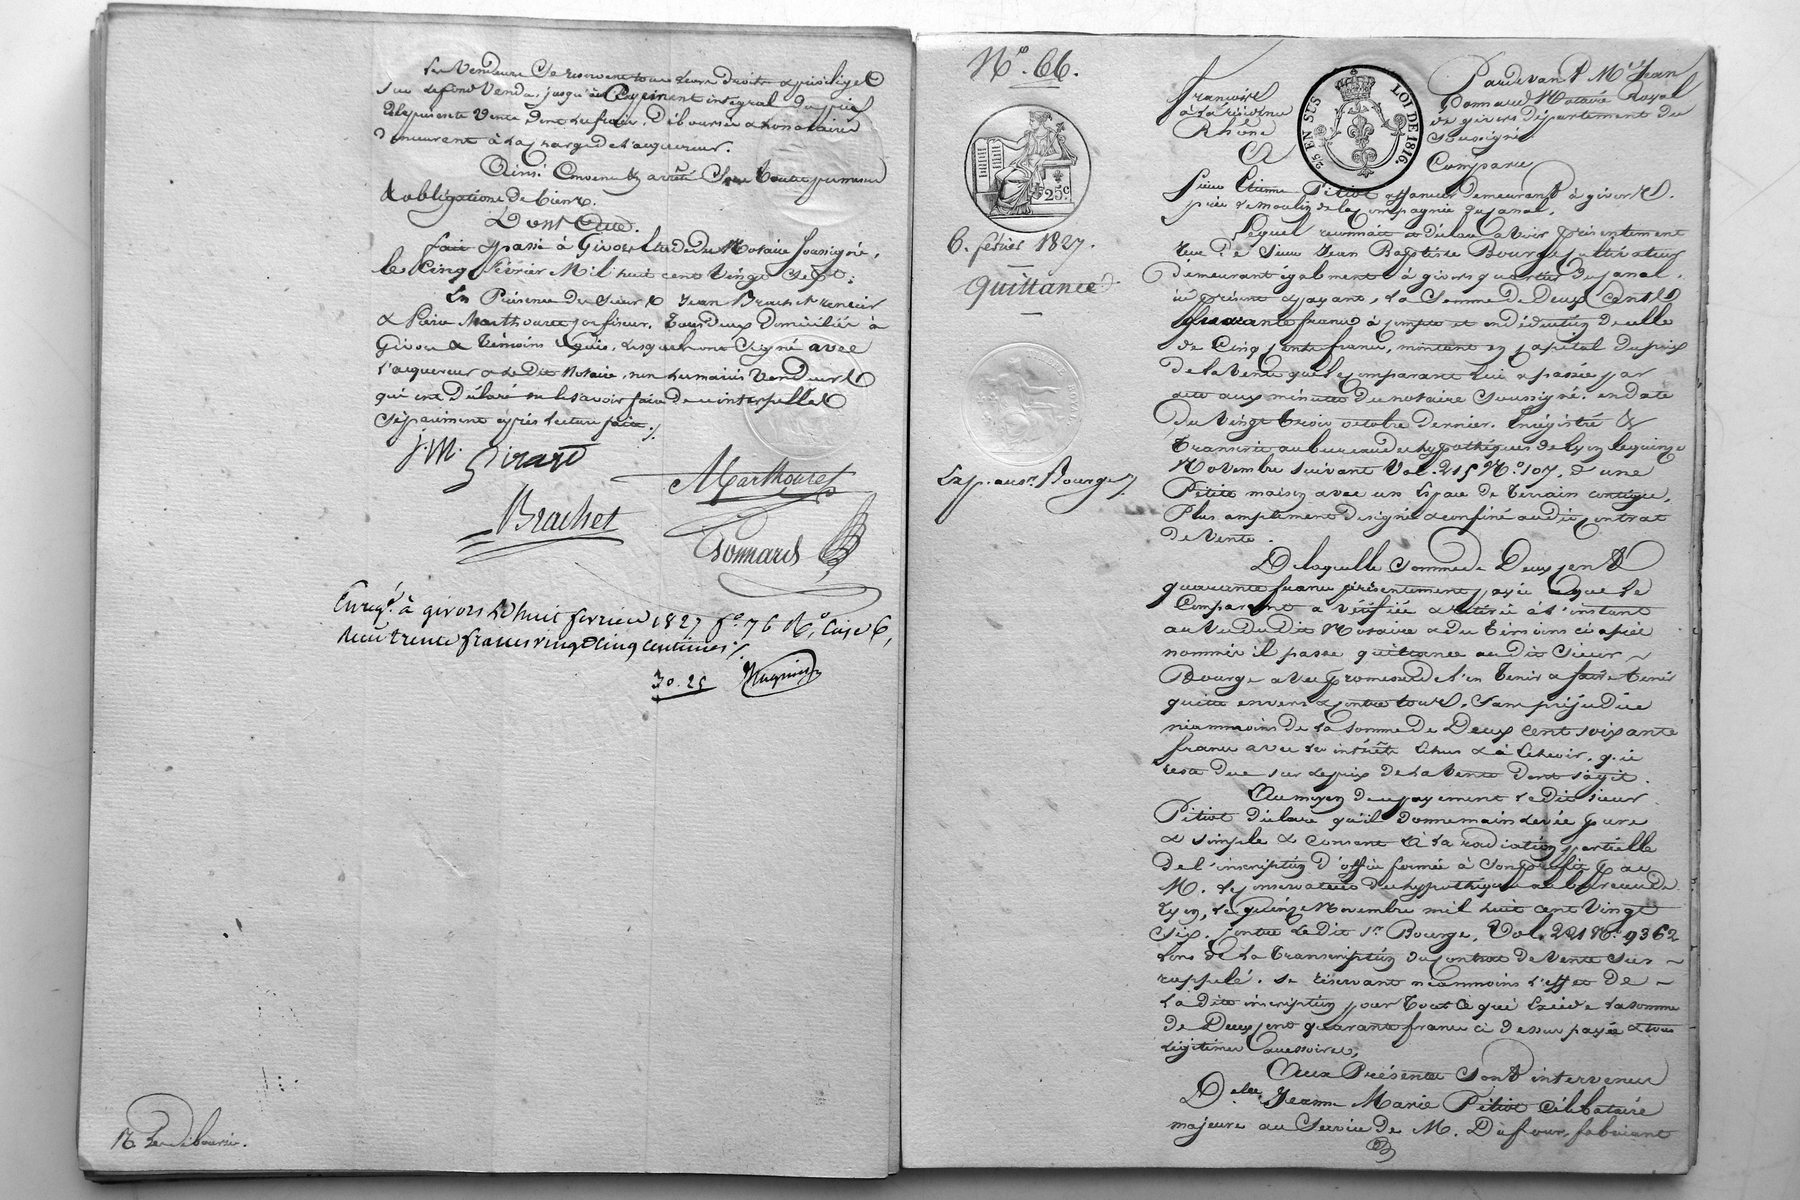 Les Vendeurs se reservent tous leurs droits & privileges
sur le fond Vendu, jusqu'au payement intégral du prix
de la presente Vente dont les frais, déboursés & honoraires
demeurent à la charge de l'acquereur.
Ainsi Convenu & arrêté sous toute promesse
& obligations de biens.
Dont Acte.
fait & passé à Givors Etude du Notaire soussigné,
le Cinq février Mil huit cent vingt sept.
En Présence des sieurs Jean Brachet rentier
& Pierre Marthouret tous deux domiciliés à
Givors & témoins requis, lesquels ont signé avec
l'acquereur & le dit Notaire, non les mariés Vendeurs
qui ont déclaré ne le savoir faire de ce interpellés
séparement après lecture faite ./.
J. M. Girard
Marthouret
Brachet
Bonnard
Enreg.é à givors le huit fevrier 1827 f.º 76 R.º Case 6,
Reçu trente francs vingt cinq centimes ./.
30.25
Nº. 66.
25.c
6. février 1827.
Quittance
Exp. au sr. Bourge
25 EN SUS
LOI DE 1816.
Pardevant Me. Jean
Bonnard Notaire Royal
de givors département du
Rhône
soussigné
Ct
Comparu
sieur Etienne Pitiot demeurant à givors
près le moulin de la Compagnie du Canal,
Lequel reconnait & déclare avoir présentement
reçu de sieur Jean Baptiste Bourge cultivateur
demeurant également à givors quartier du Canal,
ici présent & payant, la somme de Deux Cents
quarante francs à compte et en déduction de celle
de Cinq cents francs, montant en capital du prix
de la Vente que le comparant lui a passée par
acte aux minutes du notaire soussigné, en date
du Vingt trois octobre dernier. Enregistré &
transcrit au bureau des hypothèques de Lyon le quinze
Novembre suivant Vol. 215 Nº. 107, d'une
Petite maison avec un Espace de terrain contigue,
Plus amplement designé & confiné au dit contrat
de Vente.
De laquelle somme de Deux cent
quarante francs présentement payée & que le
Comparant a vérifiée & retirée à l'instant
au Vu du dit Notaire & des témoins ci après
nommés il passe quittance au dit sieur
Bourge avec promesse de l'en tenir & faire tenir
quitte envers & contre tous, sans préjudice
néanmoins de la somme de Deux cent soixante
francs avec les intérêts Echus & à Echoir, qui
reste due sur le prix de la Vente dont s'agit.
Au moyen du payement le dit sieur
Pitiot déclare qu'il donne main levée pure
& simple & consent à la radiation partielle
de l'inscription d'office formée à son profit par
M. le Conservateur des hypothèques au bureau de
Lyon, le quinze Novembre mil huit cent Vingt
Six, contre le dit sr. Bourge, Vol. 221 Nº. 9362
lors de la transcription du contrat de Vente sus
rappelé, se réservant néanmoins l'effet de
la dite inscription pour tout ce qui Excède la somme
de Deux cent quarante francs ci dessus payée & tous
légitimes accessoires,
Aux Présentes sont intervenus
Delle Jeanne Marie Pitiot Célibataire
majeure au service de M. Dufour, fabricant